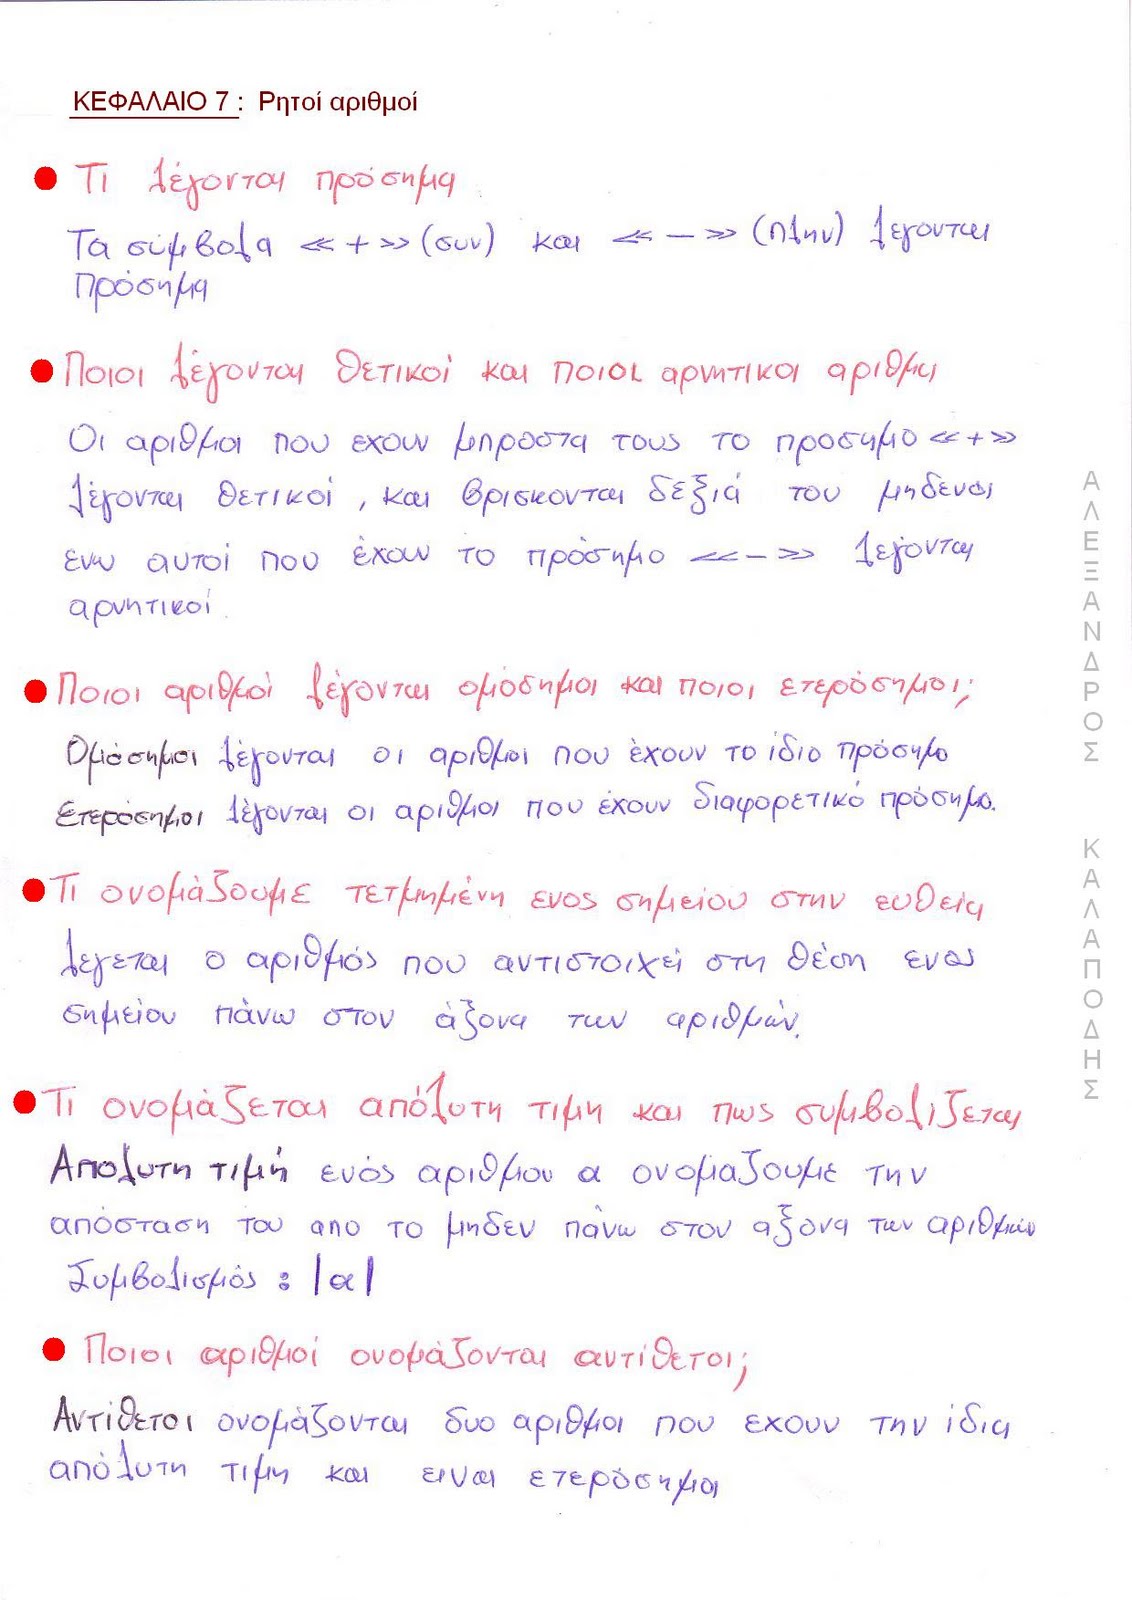 ΚΕΦΑΛΑΙΟ 7 : Ρητοί αριθμοί
Τι λέγονται πρόσημα
Τα σύμβολα «+» (συν) και «-» (πλην) λεγονται
Πρόσημα
Ποιοι λέγονται θετικοί και ποιοι αρνητικοι αριθμοι
Οι αριθμοι που εχουν μπροστα τους το προσημο «+»
λέγονται θετικοί , και βρισκονται δεξιά του μηδενος
ενω αυτοί που έχουν το πρόσημο «-» λεγονται
αρνητικοί.
Ποιοι αριθμοί λέγονται ομόσημοι και ποιοι ετερόσημοι;
Ομόσημοι λέγονται οι αριθμοι που έχουν το ίδιο πρόσημο
Ετερόσημοι λέγονται οι αριθμοι που έχουν διαφορετικό πρόσημο.
Τι ονομάζουμε τετμημένη ενος σημείου στην ευθεία
λεγεται ο αριθμός που αντιστοιχεί στη θέση ενος
σημείου πάνω στον άξονα των αριθμών.
Τι ονομάζεται απόλυτη τιμη και πως συμβολιζεται
Απολυτη τιμή ενός αριθμου α ονομαζουμε την
απόσταση του απο το μηδεν πάνω στον αξονα των αριθμών
Συμβολισμός : |α|
Ποιοι αριθμοί ονομάζονται αντίθετοι;
Αντίθετοι ονομάζονται δυο αριθμοι που εχουν την ίδια
απόλυτη τιμη και ειναι ετερόσημοι
ΑΛΕΞΑΝΔΡΟΣ ΚΑΛΑΠΟΔΗΣ